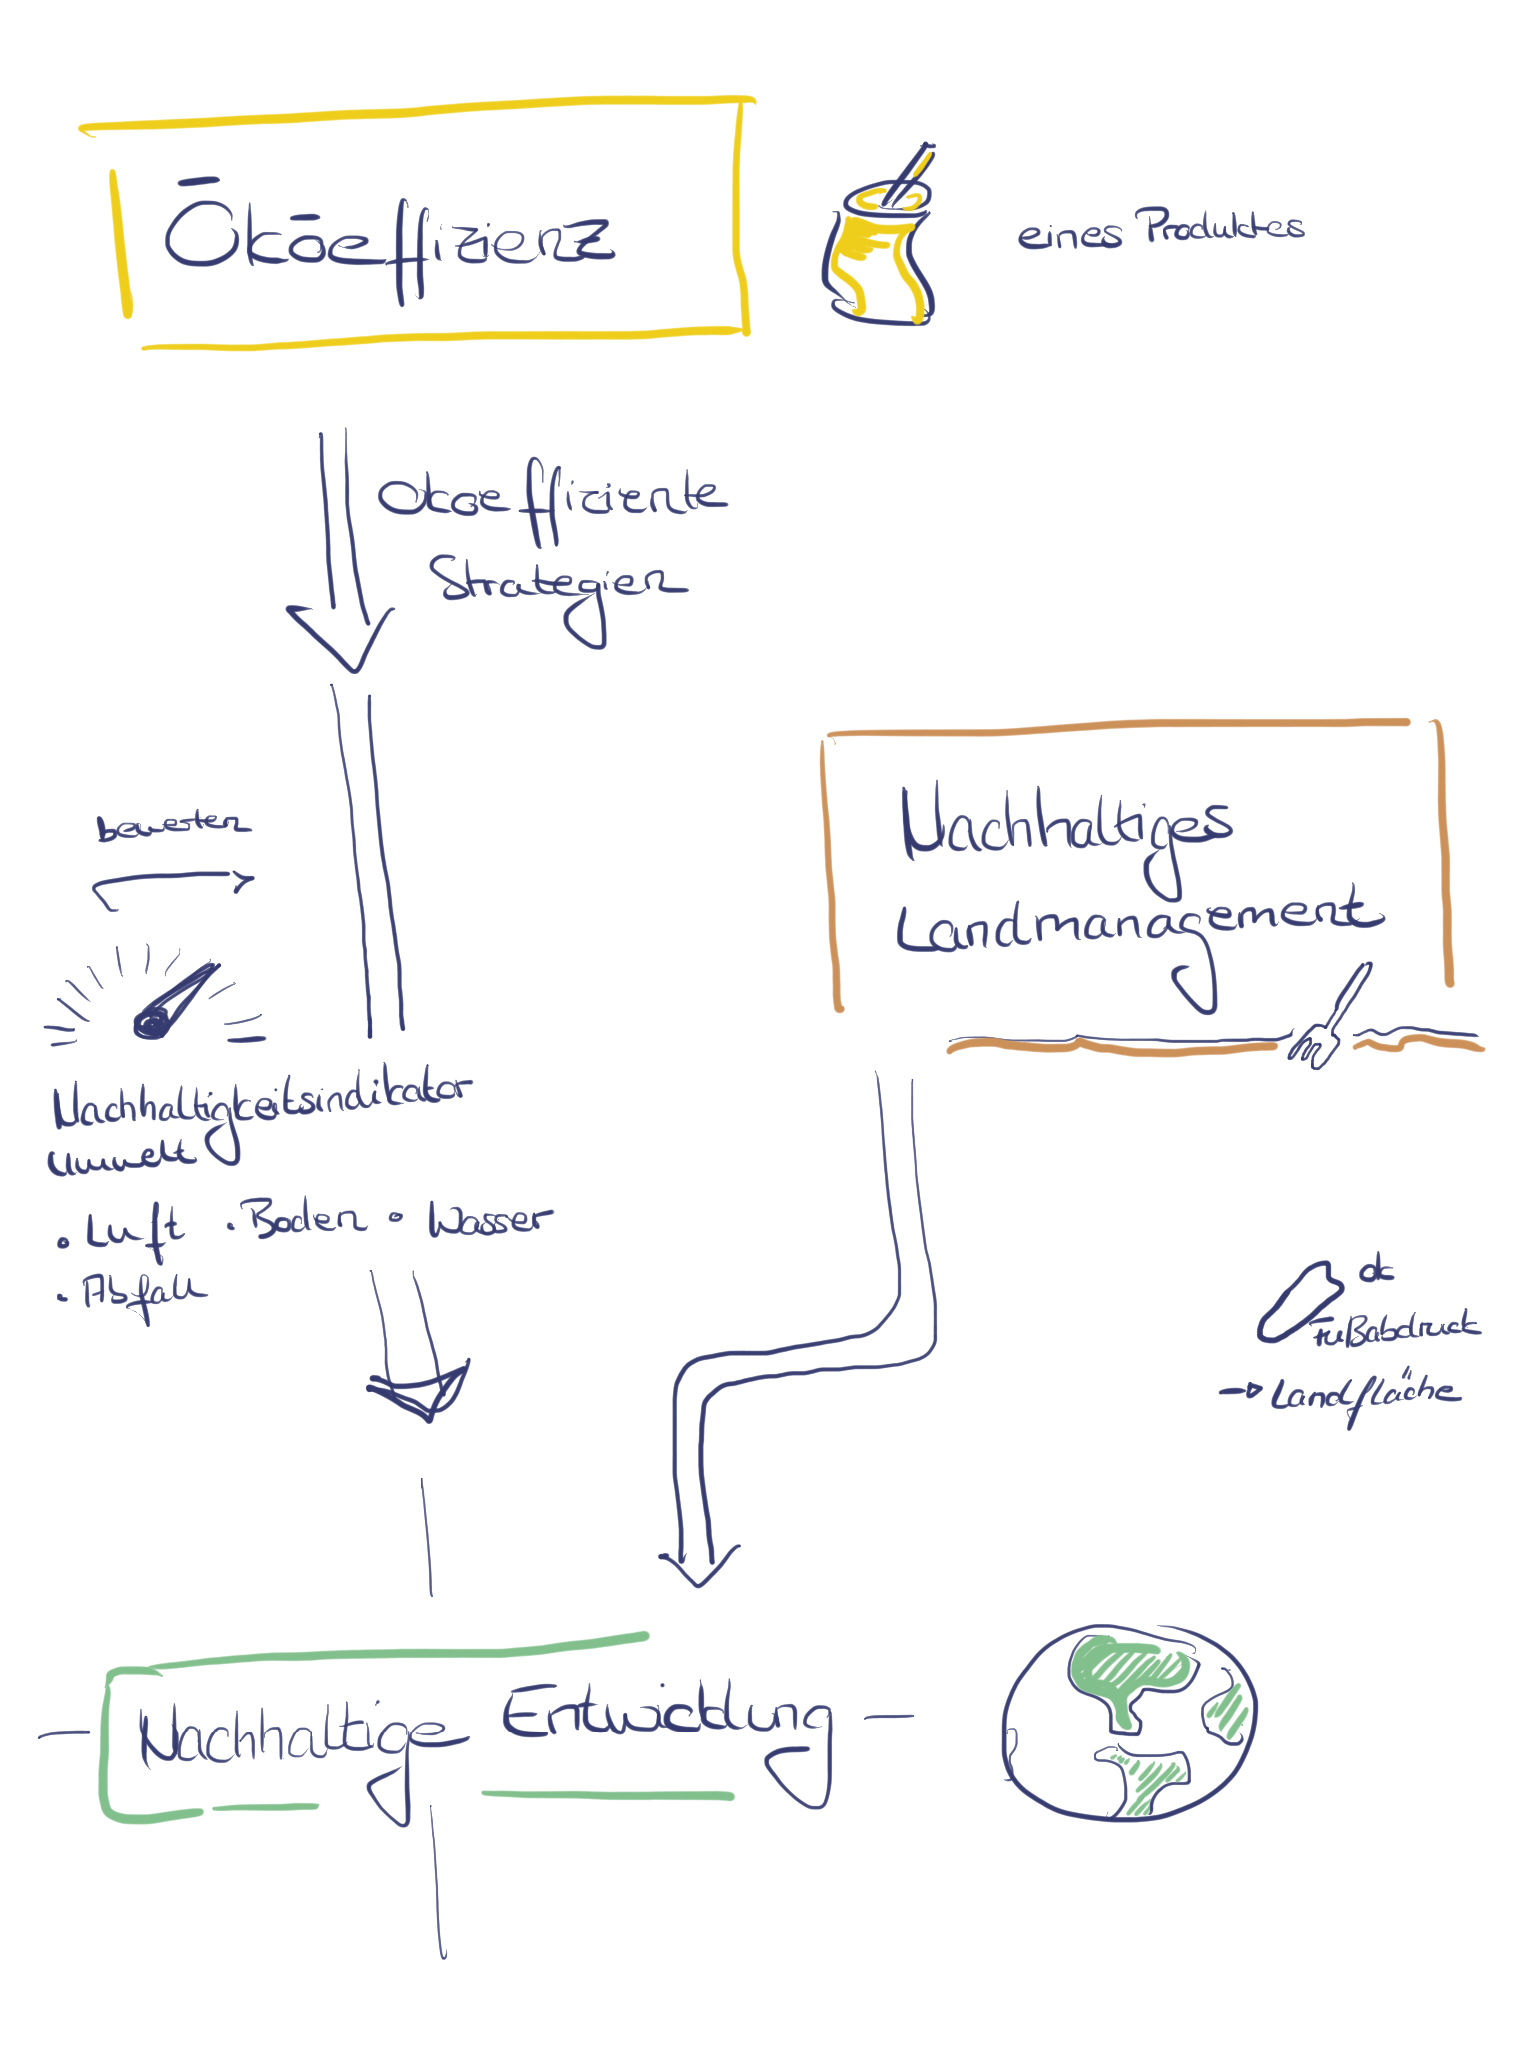 Ōkōeffizienz
eines Produktes
Okoeffiziente
Strategien
Nachhaltiges
Landmanagement
bewerten
Nachhaltigkeitsindikator
Umwelt
• Luft • Boden • Wasser
• Abfall
Fußabdruck
→ Landfläche
Nachhaltige Entwicklung